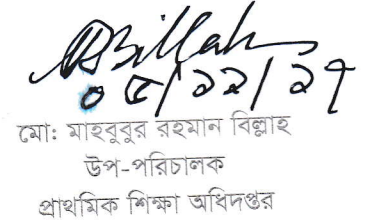 Billah
০৫/১২/১৭
মো: মাহবুবুর রহমান বিল্লাহ
উপ-পরিচালক
প্রাথমিক শিক্ষা অধিদপ্তর